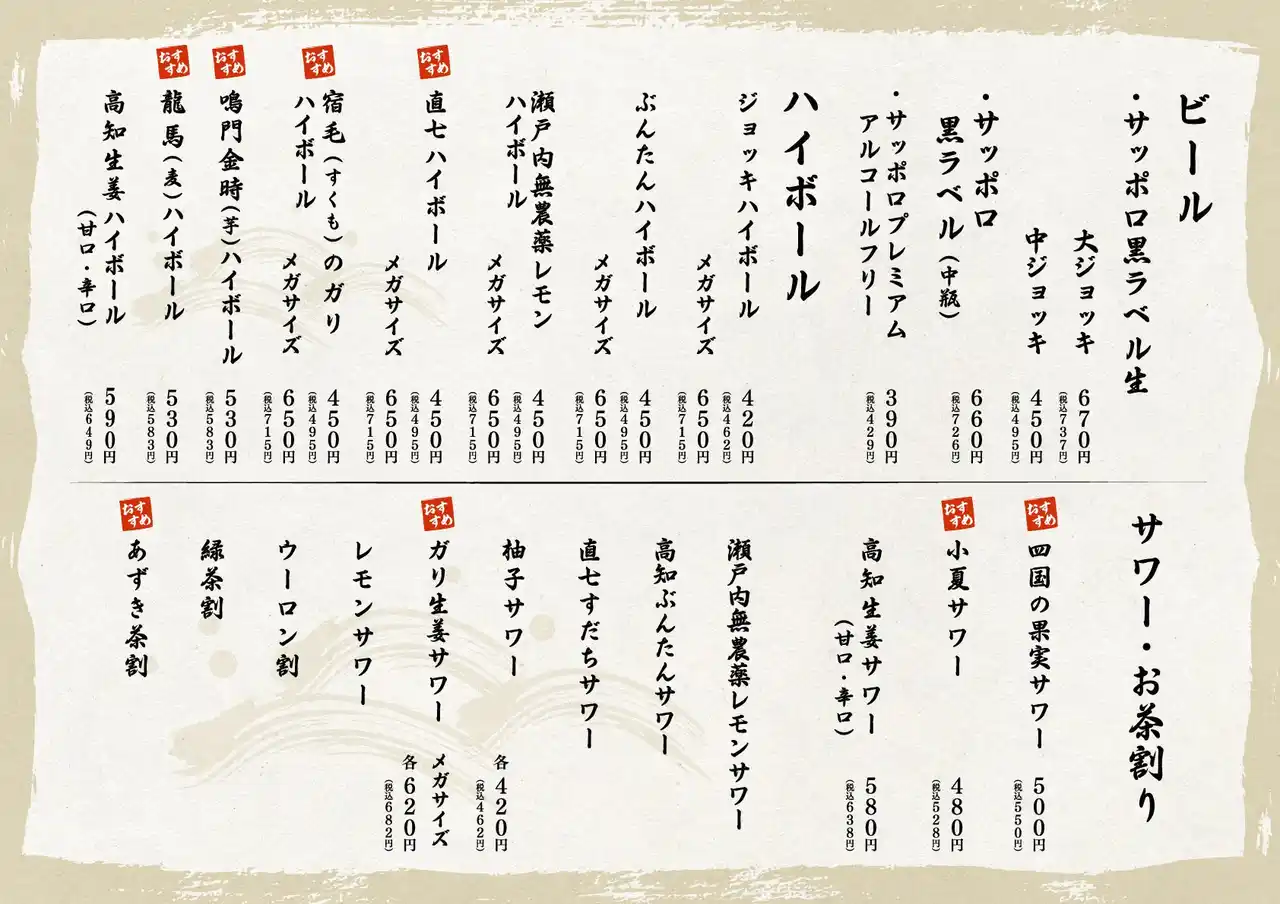 ビール
・サッポロ黒ラベル生
大ジョッキ
670円
(税込737円)
中ジョッキ
450円
(税込495円)
・サッポロ
黒ラベル(中瓶)
660円
(税込726円)
・サッポロプレミアム
アルコールフリー
390円
(税込429円)
ハイボール
ジョッキハイボール
420円
(税込462円)
メガサイズ
650円
(税込715円)
ぶんたんハイボール
450円
(税込495円)
メガサイズ
650円
(税込715円)
瀬戸内無農薬レモン
ハイボール
450円
(税込495円)
メガサイズ
650円
(税込715円)
おすすめ
直七ハイボール
450円
(税込495円)
メガサイズ
650円
(税込715円)
おすすめ
宿毛(すくも)のガリ
ハイボール
450円
(税込495円)
メガサイズ
650円
(税込715円)
おすすめ
鳴門金時(芋)ハイボール
530円
(税込583円)
おすすめ
龍馬(麦)ハイボール
530円
(税込583円)
高知生姜ハイボール
(甘口・辛口)
590円
(税込649円)
サワー・お茶割り
おすすめ
四国の果実サワー
500円
(税込550円)
おすすめ
小夏サワー
480円
(税込528円)
高知生姜サワー
(甘口・辛口)
580円
(税込638円)
瀬戸内無農薬レモンサワー
高知ぶんたんサワー
直七すだちサワー
柚子サワー
各420円
(税込462円)
おすすめ
ガリ生姜サワー
メガサイズ
各620円
(税込682円)
レモンサワー
ウーロン割
緑茶割
おすすめ
あずき茶割